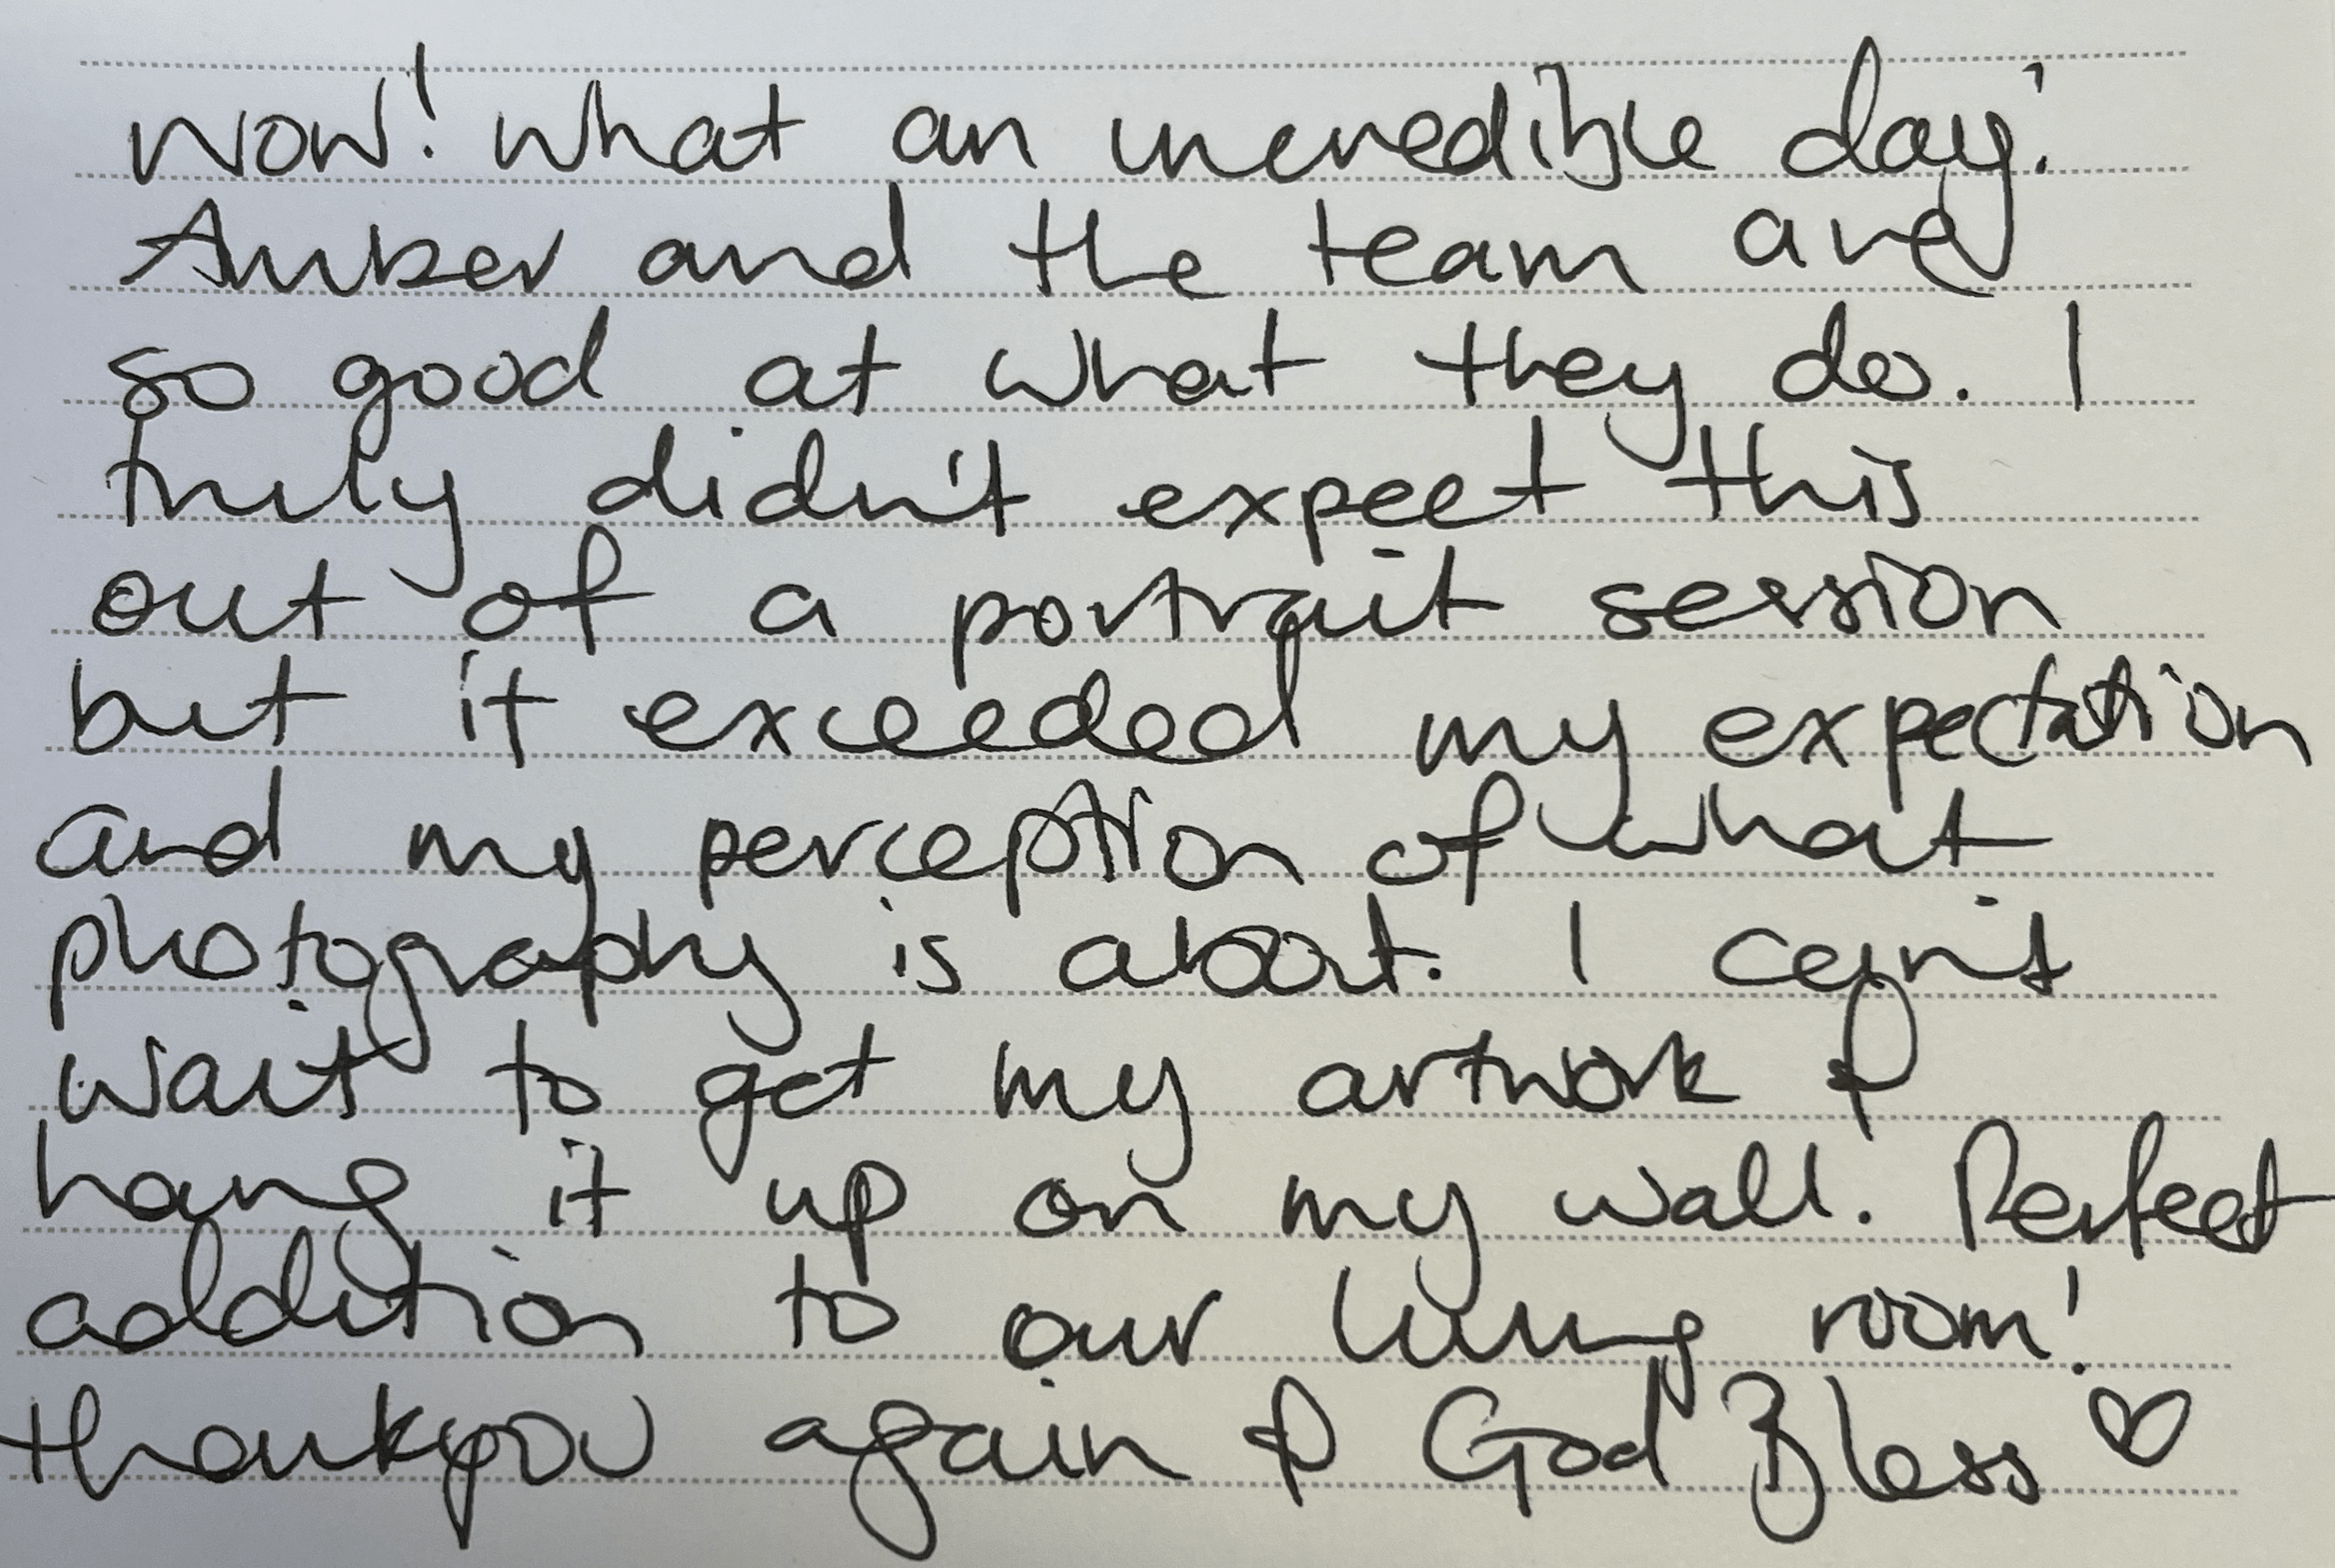 Wow! what an incredible day!
Amber and the team are
so good at what they do. I
truly didn't expect this
out of a portrait session
but it exceeded my expectation
and my perception of what
photography is about. I can't
wait to get my artwork &
hang it up on my wall. Perfect
addition to our living room!
thankyou again & God Bless ♡